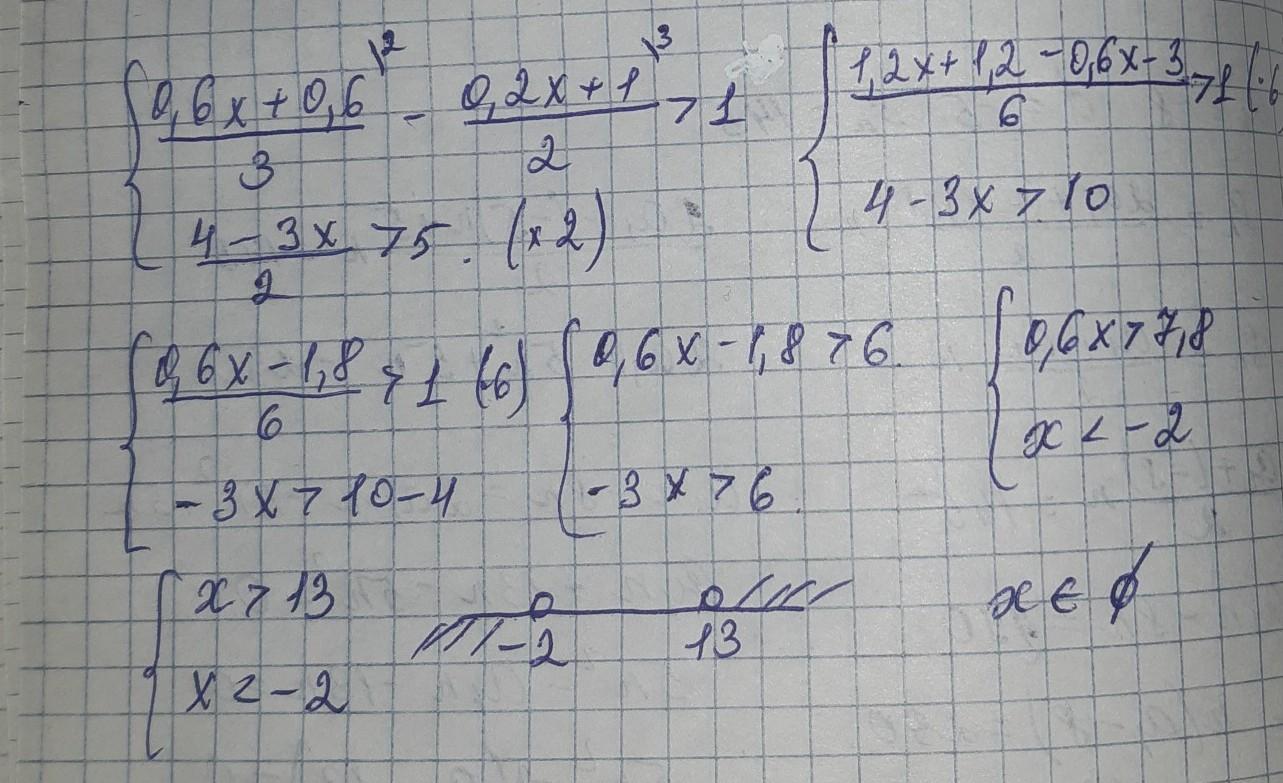 { (0,6x+0,6)/3 \2 - (0,2x+1)/2 \3 > 1
(4-3x)/2 > 5. (×2)
{ (1,2x+1,2-0,6x-3)/6 > 1 (·6
4-3x > 10
{ (0,6x-1,8)/6 > 1 (·6)
-3x > 10-4
{ 0,6x-1,8 > 6.
-3x > 6.
{ 0,6x > 7,8
x < -2
{ x > 13
x < -2
-2 13
x ∈ ∅